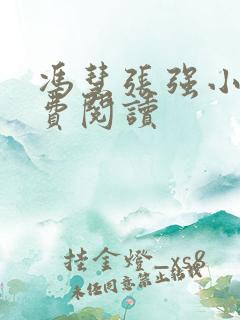 馮慧張强小
費閱讀
挂金燈_xs8
未任同意禁止轉載